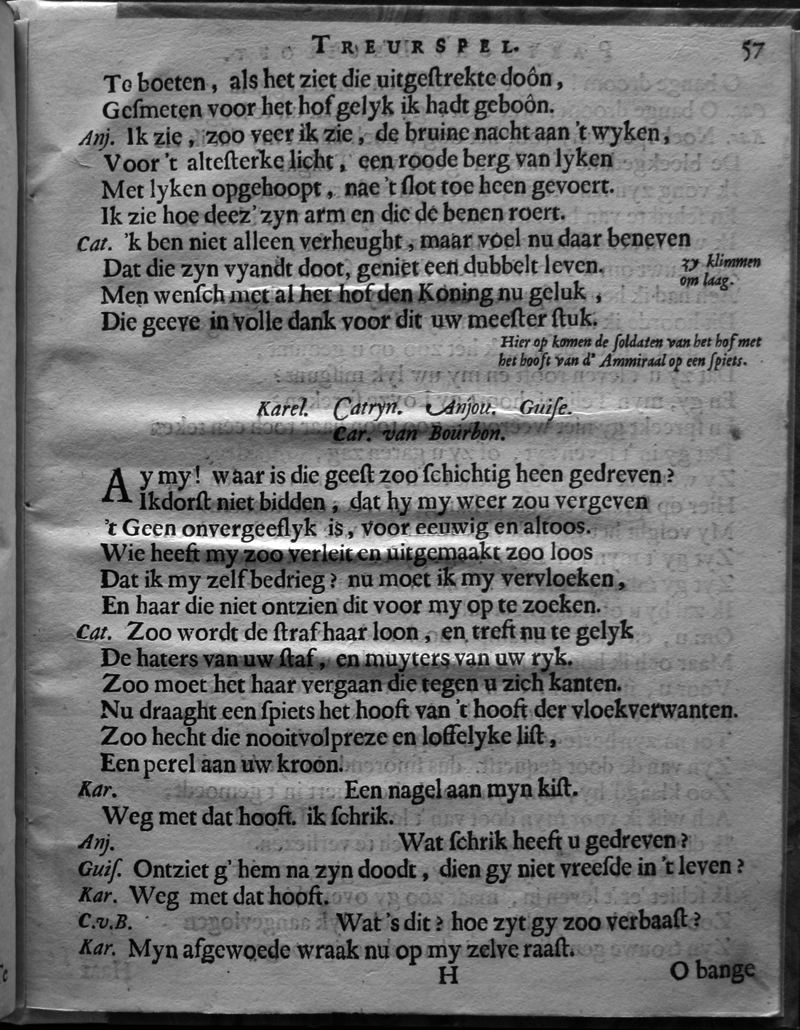 TREURSPEL. 57
Te boeten, als het ziet die uitgeſtrekte doôn,
Geſmeten voor het hof gelyk ik hadt geboôn.
Anj. Ik zie, zoo veer ik zie, de bruine nacht aan 't wyken,
Voor 't alteſterke licht, een roode berg van lyken
Met lyken opgehoopt, nae 't ſlot toe heen gevoert.
Ik zie hoe deez' zyn arm en die de benen roert.
Cat. 'k ben niet alleen verheught, maar voel nu daar beneven
Dat die zyn vyandt doot, geniet een dubbelt leven.
zy klimmen
om laag.
Men wenſch met al het hof den Koning nu geluk,
Die geeve in volle dank voor dit uw meeſter ſtuk.
Hier op komen de ſoldaten van het hof met
het hooft van d' Ammiraal op een ſpiets.
Karel. Catryn. Anjou. Guiſe.
Car. van Bourbon.
Ay my! waar is die geeſt zoo ſchichtig heen gedreven?
Ik dorſt niet bidden, dat hy my weer zou vergeven
't Geen onvergeeflyk is, voor eeuwig en altoos.
Wie heeft my zoo verleit en uitgemaakt zoo loos
Dat ik my zelf bedrieg? nu moet ik my vervloeken,
En haar die niet ontzien dit voor my op te zoeken.
Cat. Zoo wordt de ſtraf haar loon, en treft nu te gelyk
De haters van uw ſtaf, en muyters van uw ryk.
Zoo moet het haar vergaan die tegen u zich kanten.
Nu draaght een ſpiets het hooft van 't hooft der vloekverwanten.
Zoo hecht die nooitvolpreze en loffelyke liſt,
Een perel aan uw kroon.
Kar. Een nagel aan myn kiſt.
Weg met dat hooft. ik ſchrik.
Anj. Wat ſchrik heeft u gedreven?
Guiſ. Ontziet g' hem na zyn doodt, dien gy niet vreeſde in 't leven?
Kar. Weg met dat hooft.
C.v.B. Wat 's dit? hoe zyt gy zoo verbaaſt?
Kar. Myn afgewoede wraak nu op my zelve raaſt.
H O bange